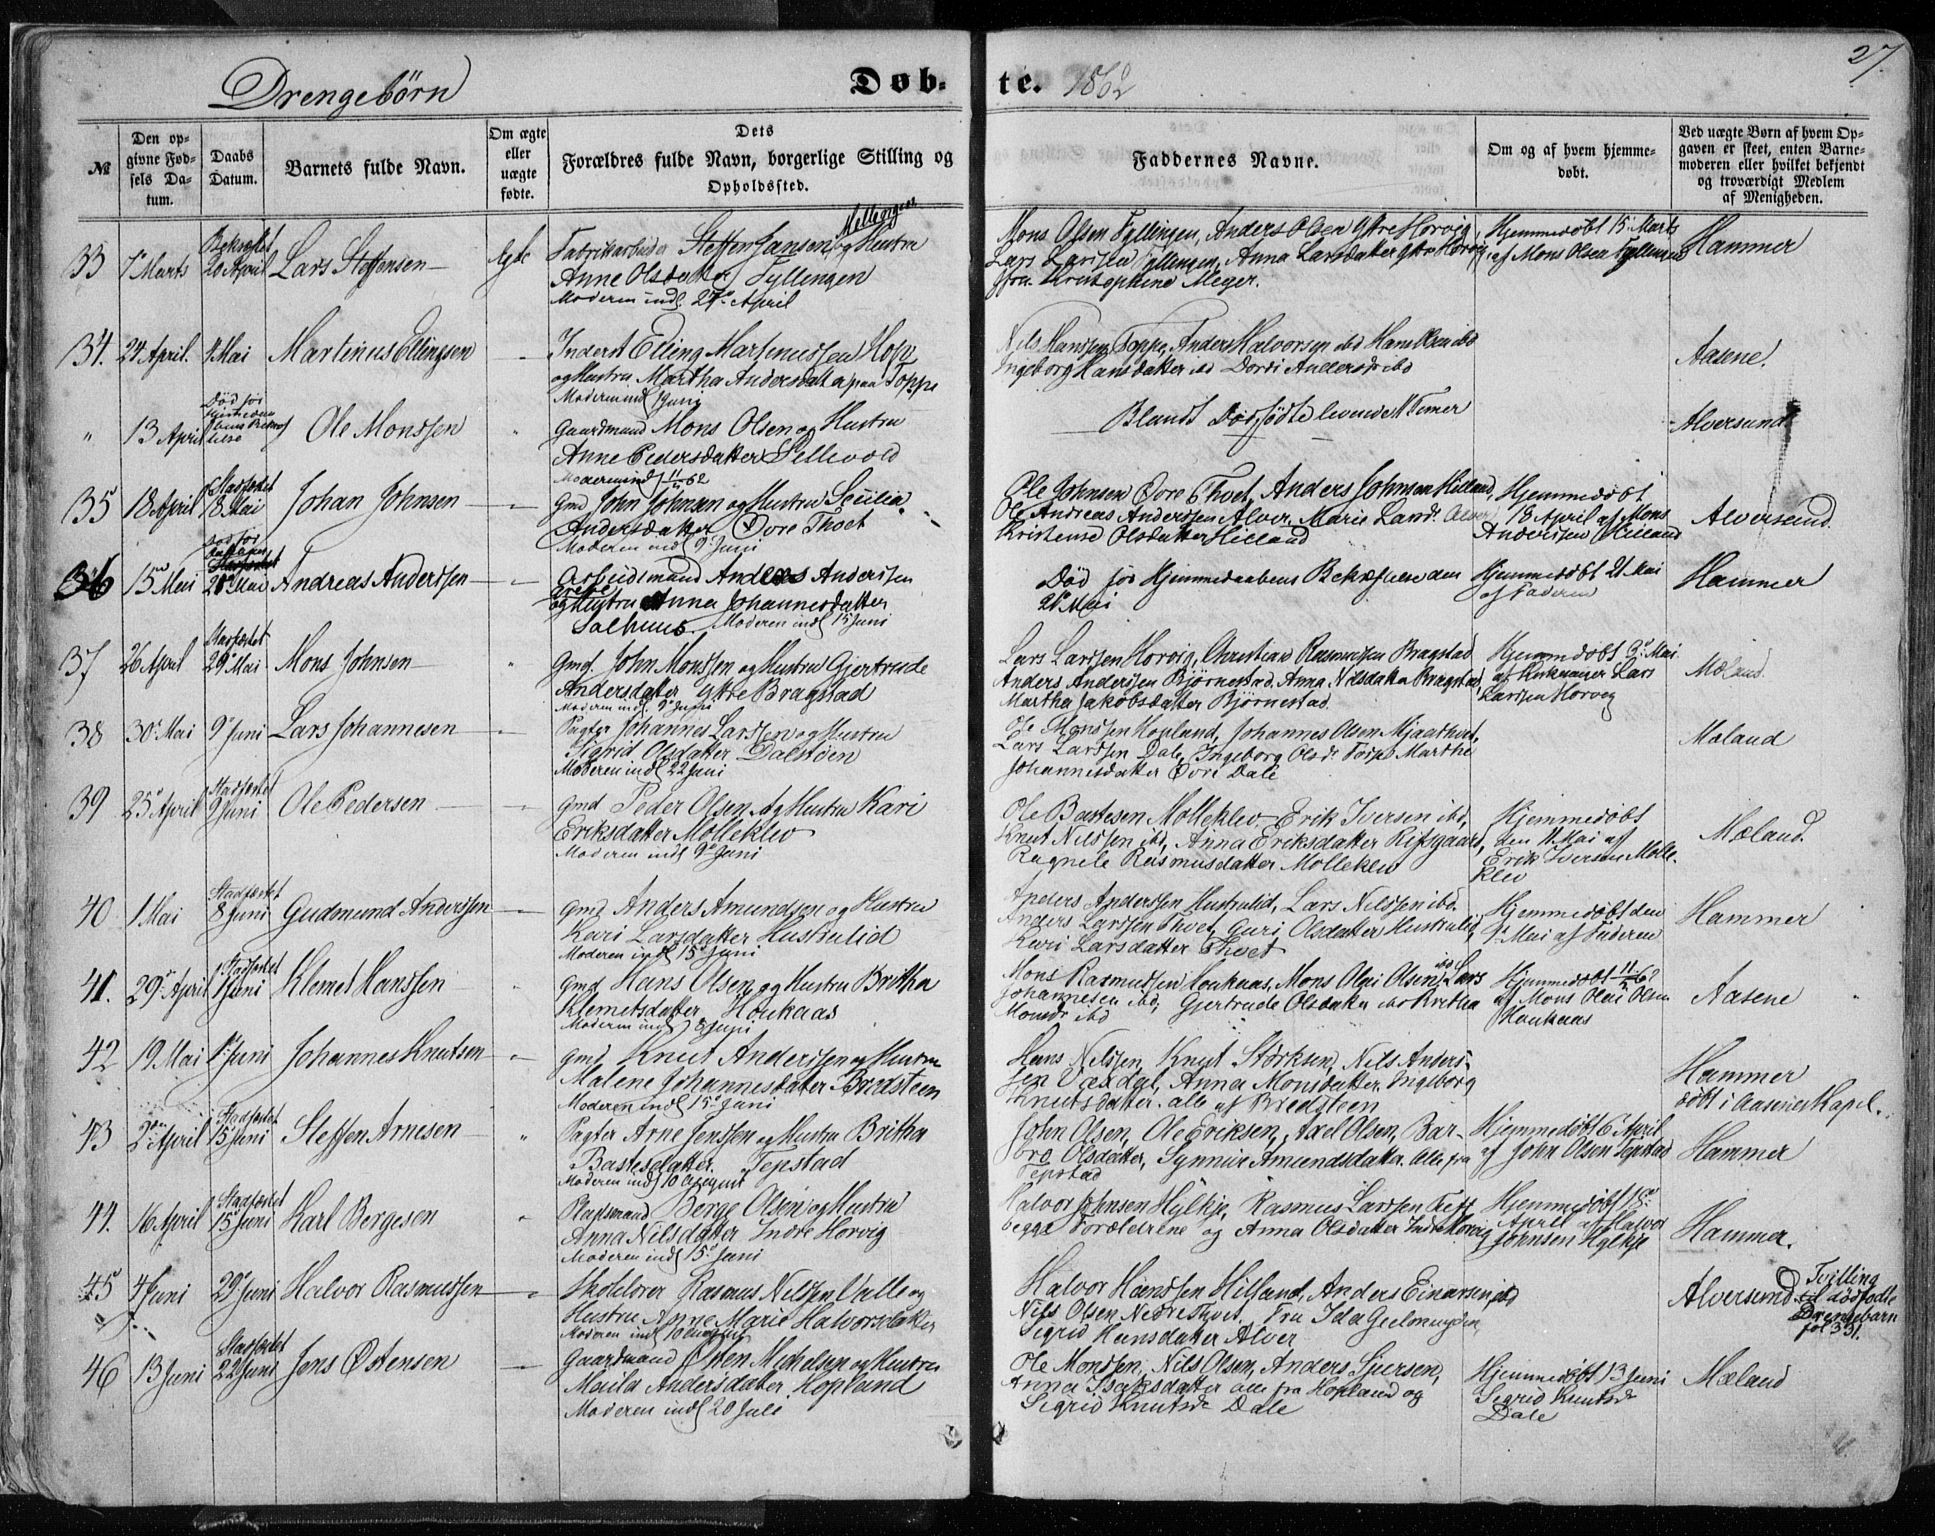 27.
Drengebørn
Døb-
te. 1862
№
Den op-
givne Fød-
sels Da-
tum.
Daabs
Datum.
Barnets fulde Navn.
Om ægte
eller
uægte
fødte.
Dets
Forældres fulde Navn, borgerlige Stilling og
Opholdssted.
Faddernes Navne.
Om og af hvem hjemme-
døbt.
Ved uægte Børn af hvem Op-
gaven er skeet, enten Barne-
moderen eller hvilket bekjendt
og troværdigt Medlem
af Menigheden.
33 7 Marts
20 April Lars Steffensen
Fabrikarbeider Steffen Jansen og Hustru
Anne Olsdatter Tyllingen
Moderen indl. 27 April
Mons Olsen Tyllingen, Anders Olsen Ystre Horvig,
Lars Larsen Tyllingen, Anna Larsdatter Ystre Horvig
Meyer.
Hjemmedøbt 15 Marts
af Mons Olsen Tyllingen
Hammer
34. 24 April. Mai Martinus Ellingsen
Inderst Elling Martinussen Hop
og Hustru Martha Andersdatter paa Toppe
Moderen indl Juni
Nils Hansen Toppe, Anders Halvorsen ibd Hans Olsen ibd
Ingeborg Hansdatter ibd Dordi Andersdr ibd
Aasene.
" 13 April
Død før
Ole Monssen
Gaardmand Mons Olsen og Hustru
Anne Pedersdatter Sellevold
Blandt Dødfødte
Alversund
35 18 April
Stadfæstet
18 Mai Johan Johnsen
Gmd John Johnsen og Hustru
Andersdatter Øvre Thvet
Moderen indl 9 Juni
Ole Johnsen Øvre Thvet, Anders Johnsen Hilland,
Ole Andreas Anderssen Alver, Marie Larsdr. Alver
Olsdatter Hilland
Hjemmedøbt
18 April af Mons
Anderssen Hilland
Alversund.
36 15 Mai
Mai Andreas Anderssen
Arbeidsmand Anders Anderssen
og Hustru Anna Johannesdatter
Salhuus. Moderen indl 15 Juni
Død før Hjemmedaabens Bekræftelse den
21 Mai
Hjemmedøbt 21 Mai
af Faderen
Hammer
37 26 April
Stadfæstet
29 Mai Mons Johnsen
Gmd. John Monssen og Hustru Gjertrude
Andersdatter Ystre Bragstad
Moderen indl. 9 Juni
Lars Larssen Horvig, Christian Rasmussen Bragstad
Anders Anderssen Bjørnestad, Anna Nilsdatter Bragstad,
Martha Jakobsdatter Bjørnestad
Hjemmedøbt Mai
af Lars
Larssen Horvig
Mæland.
38 30 Mai 9 Juni Lars Johannesen
Pagter Johannes Larssen og Hustru
Sigrid Olsdatter Dalstøen
Moderen indl 22 Juni
Ole Monssen Hopland, Johannes Olsen Mjaathvet,
Lars Larssen Dale, Ingeborg Olsdr Marthe
Johannesdatter Øvre Dale
Mæland
39 25 April
Stadfæstet
9 Juni Ole Pedersen
gmd Peder Olsen og Hustru Kari
Eriksdatter Molleklev
Moderen indl 9 Juni
Ole Bastesen Molleklev. Erik Iversen ibd,
Knut Nilssen ibd, Anna Eriksdatter
Rasmusdatter Molleklev
Hjemmedøbt
den 11 Mai af
Erik Iversen Molle-
klev
Mæland.
40 1 Mai
Stadfæstet
8 Juni Gudmund Anderssen
gmd Anders Amundsen og Hustru
Kari Larsdatter Hustrulid
Moderen indl 15 Juni
Anderssen Hustrulid, Lars Nilssen ibd.
Anders Larssen Thvet, Guri Olsdatter Hustrulid,
Kari Larsdatter Thvet
Hjemmedøbt den
Mai af Faderen
Hammer
41. 29 April
Stadfæstet
1 Juni Klemet Hanssen
gmd Hans Olsen og Hustru Britha
Klemetsdatter Houkaas
Moderen indl 8 Juni
Mons Rasmussen Houkaas, Mons Olai Olsen ibd Lars
Johannesen ibd, Gjertrude Olsdatter ibd Britha
Monsdr ibd
Hjemmedøbt
af Mons Olai Olsen
Houkaas
Aasene
42 19 Mai Juni Johannes Knutsen
gmd Knut Anderssen og Hustru
Malene Johannesdatter Bredsteen
Moderen indl 15 Juni
Hans Nilssen, Knut Størksen, Nils Anders-
sen Anna Monsdatter, Ingeborg
Knutsdatter. alle af Bredsteen
Hammer
døbt i Aasene Kapel.
43 2 April
Stadfæstet
15 Juni Steffen Arnesen
Pagter Arne Jenssen og Hustru Britha
Bastesdatter. Tepstad
Moderen indl 10 August
John Olsen, Ole Eriksen, Axel Olsen, Bar-
bro Olsdatter, Synnive Amundsdatter. Alle fra
Tepstad
Hjemmedøbt 6 April
af John Olsen Tepstad
Hammer
44. 16 April
Stadfæstet
15 Juni Karl Bergesen
Pladsmand Berge Olsen og Hustru
Anna Nilsdatter Indre Horvig
Moderen indl 15 Juni
Halvor Johnsen Hylkje, Rasmus Larssen
begge Forældrene og Anna Olsdatter Indre Horvig
Hjemmedøbt
April af Halvor
Johnsen Hylkje
Hammer.
45 4 Juni 29 Juni Halvor Rasmussen
Skolelærer Rasmus Nilssen Valle og
Hustru Anne Marie Halvorsdatter
Moderen indl 10 August
Halvor Hanssen Hilland, Anders Einarsen ibd
Nils Olsen Nedre Thvet. Fru Ida Geelmuyden,
Sigrid Hansdatter Alver
Alversund
Tvilling
til dødfødte
Drengebarn
fol 331.
46 13 Juni
Stadfæstet
22 Juni Jens Østensen
Gaardmand Østen Mikkelsen og Hustru
Andersdatter Hopland
Moderen indl 20 Juli
Ole Monssen, Nils Olsen, Anders Sjursen,
Anna Isaksdatter alle fra Hopland og
Sigrid Knutsdr Dale
Hjemmedøbt 13 Juni
Sigrid Knutsdr
Dale
Mæland